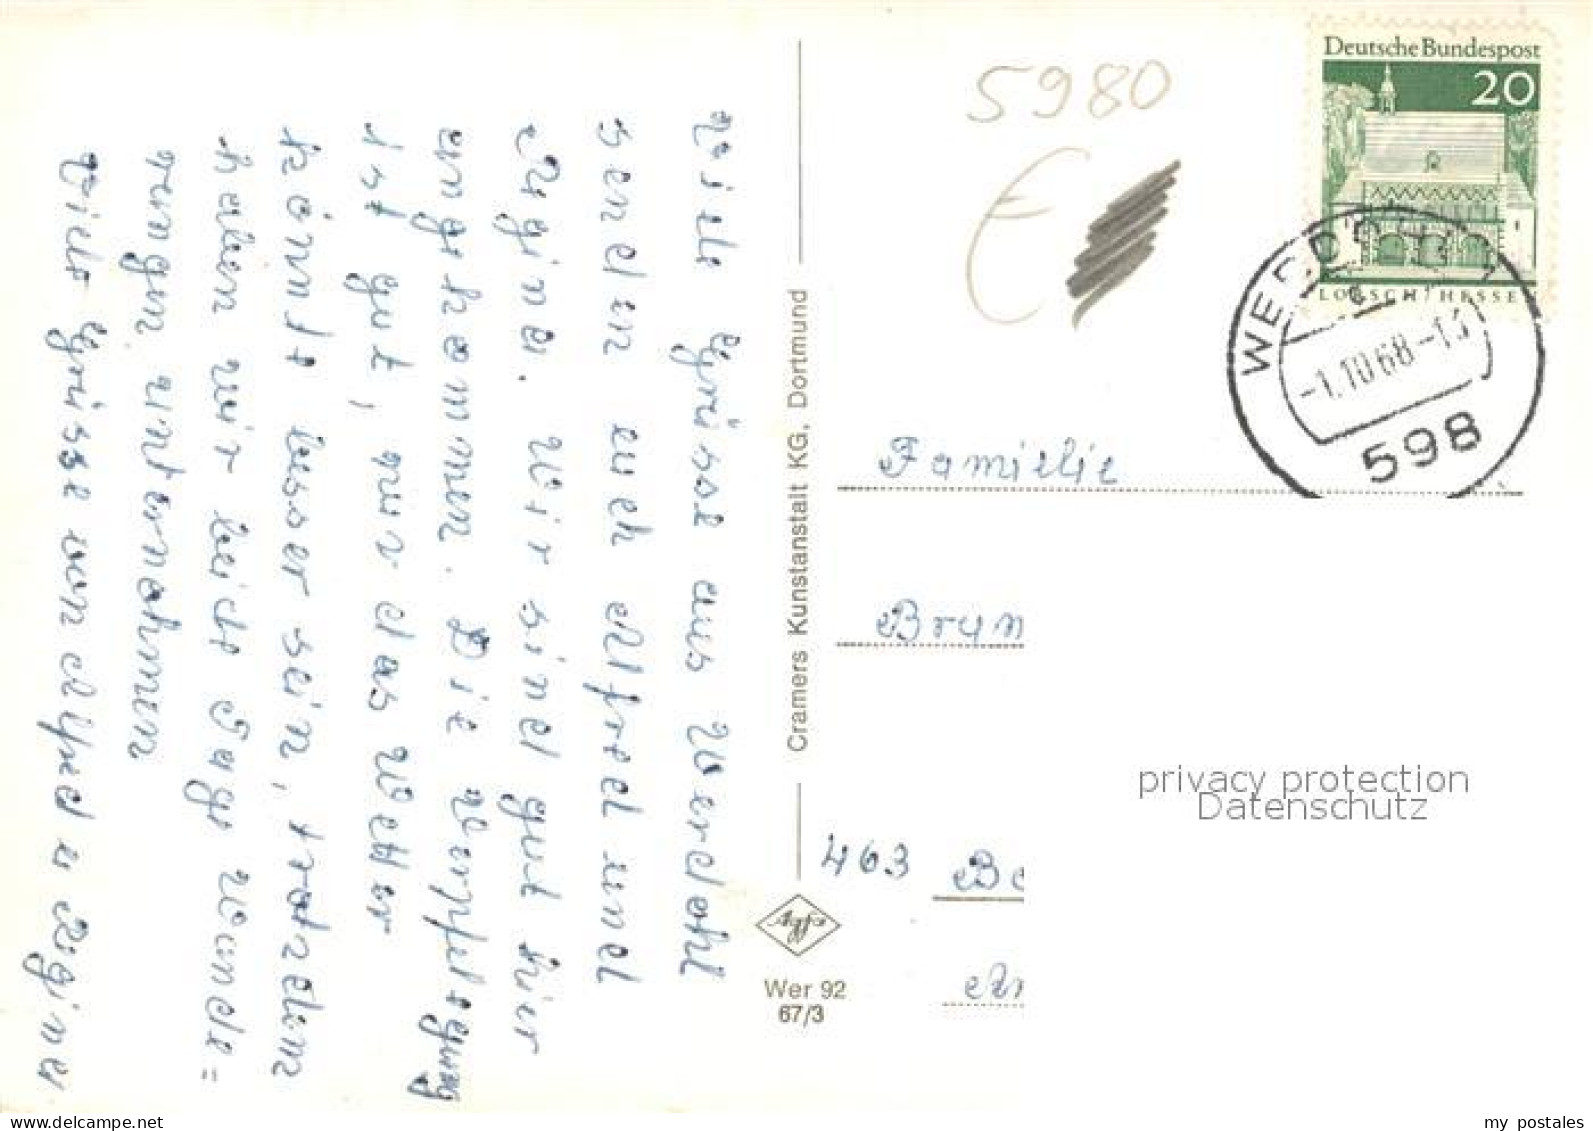 Viele Grüsse aus Werdohl
senden euch Alfred und
Regina. Wir sind gut hier
angekommen. Die Verpflegung
ist gut, nur das Wetter
könnte besser sein, trotzdem
haben wir beide Tage Wande=
rungen unternohmen
Viele Grüsse von Alfred u Regina
Cramers Kunstanstalt KG, Dortmund
Wer 92
67/3
5980
€
Deutsche Bundespost
20
LORSCH/HESSEN
WERDOHL 1
-1.10.68-13
598
Familie
Brun
463 Bo
An
privacy protection
Datenschutz
my postales
www.delcampe.net